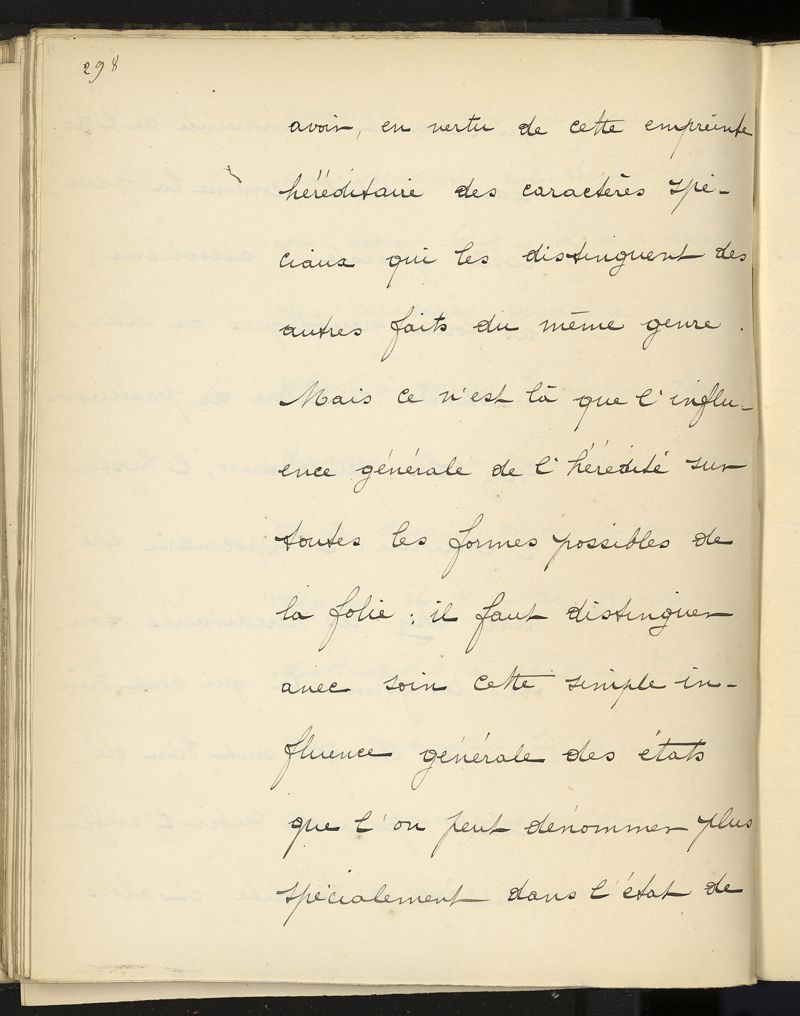 298
avoir, en vertu de cette empreinte
héréditaire des caractères spé-
ciaux qui les distinguent des
autres faits du même genre.
Mais ce n'est là que l'influ-
ence générale de l'hérédité sur
toutes les formes possibles de
la folie : il faut distinguer
avec soin cette simple in-
fluence générale des états
que l'on peut dénommer plus
spécialement dans l'état de